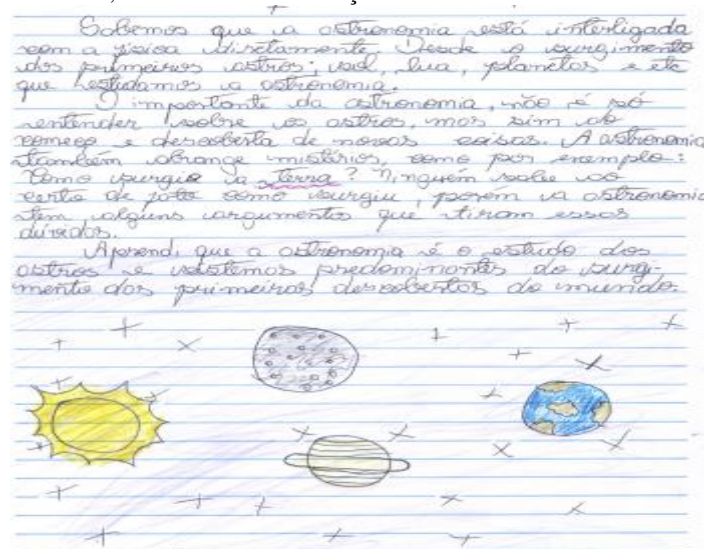 Sabemos que a astronomia está interligada
com a física diretamente. Desde o surgimento
dos primeiros astros; sol, lua, planetas e etc
que estudamos a astronomia.
O importante da astronomia, não é só
entender sobre os astros, mas sim do
começo e descoberta de novas coisas. A astronomia
também abrange mistérios, como por exemplo:
Como surgiu a Terra? Ninguém sabe ao
certo de fato como surgiu, porém a astronomia
tem alguns argumentos que tiram essas
dúvidas.
Aprendi que a astronomia é o estudo dos
astros e sistemas predominantes do surgi-
mento dos primeiros descobertos do mundo.